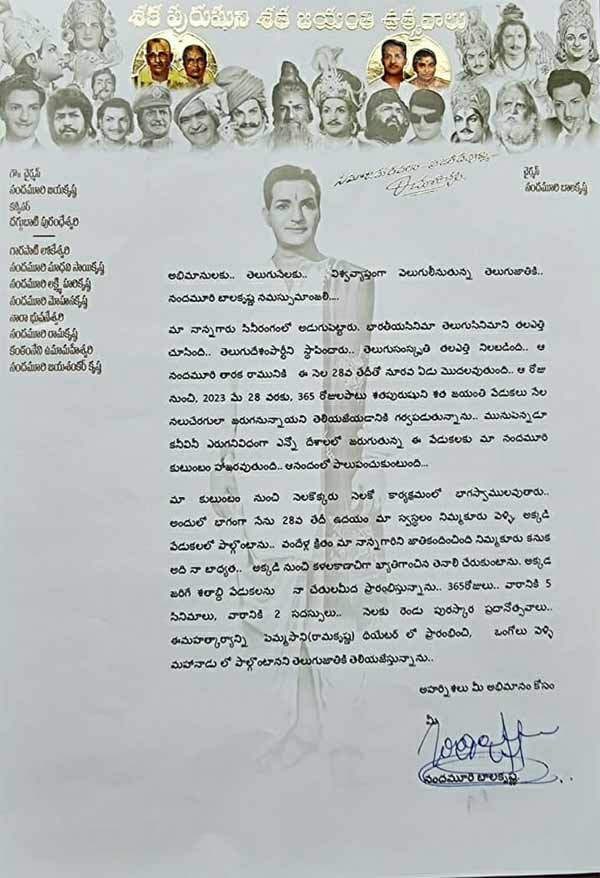 శక పురుషుని శత జయంతి ఉత్సవాలు
గౌ॥ ఛైర్మన్
నందమూరి జయకృష్ణ
కన్వీనర్
దగ్గుబాటి పురంధేశ్వరి
గారపాటి లోకేశ్వరి
నందమూరి మాధవి సాయికృష్ణ
నందమూరి లక్ష్మీ హరికృష్ణ
నందమూరి మోహనకృష్ణ
నారా భువనేశ్వరి
నందమూరి రామకృష్ణ
కంఠంనేని ఉమామహేశ్వరి
నందమూరి జయశంకర్ కృష్ణ
ఛైర్మన్
నందమూరి బాలకృష్ణ
అభిమానులకు.. తెలుగునేలకు.. విశ్వవ్యాప్తంగా వెలుగులీనుతున్న తెలుగుజాతికి..
నందమూరి బాలకృష్ణ నమస్సుమాంజలి....
మా నాన్నగారు సినీరంగంలో అడుగుపెట్టారు. భారతీయసినిమా తెలుగుసినిమాని తలఎత్తి
చూసింది.. తెలుగుదేశంపార్టీని స్థాపించారు.. తెలుగుసంస్కృతి తలఎత్తి నిలబడింది.. ఆ
నందమూరి తారక రామునికి ఈ నెల 28వ తేదీతో నూరవ ఏడు మొదలవుతుంది.. ఆ రోజు
నుంచి, 2023 మే 28 వరకు, 365 రోజులపాటు శతపురుషుని శత జయంతి వేడుకలు నేల
నలుచేరగులా జరుగనున్నాయని తెలియజేయడానికి గర్వపడుతున్నాను.. మునుపెన్నడూ
కనీవినీ ఎరుగనివిధంగా ఎన్నో దేశాలలో జరుగుతున్న ఈ వేడుకలకు మా నందమూరి
కుటుంబం హాజరవుతుంది.. ఆనందంలో పాలుపంచుకుంటుంది...
మా కుటుంబం నుంచి నెలకొక్కరు నెలకో కార్యక్రమంలో భాగస్వాములవుతారు..
అందులో భాగంగా నేను 28వ తేదీ ఉదయం మా స్వస్థలం నిమ్మకూరు వెళ్ళి, అక్కడి
వేడుకలలో పాల్గొంటాను.. వందేళ్ల క్రితం మా నాన్నగారిని జాతికందించింది నిమ్మకూరు కనుక
అది నా బాధ్యత.. అక్కడి నుంచి కళలకాణాచిగా ఖ్యాతిగాంచిన తెనాలి చేరుకుంటాను. అక్కడ
జరిగే శతాబ్ది వేడుకలను నా చేతులమీద ప్రారంభిస్తున్నాను.. 365రోజులు.. వారానికి 5
సినిమాలు, వారానికి 2 సదస్సులు.. నెలకు రెండు పురస్కార ప్రదానోత్సవాలు..
ఈమహత్కార్యాన్ని పెమ్మసాని(రామకృష్ణ) థియేటర్ లో ప్రారంభించి, ఒంగోలు వెళ్ళి
మహానాడు లో పాల్గొంటానని తెలుగుజాతికి తెలియజేస్తున్నాను..
అహర్నిశలు మీ అభిమానం కోసం
మీ
నందమూరి బాలకృష్ణ